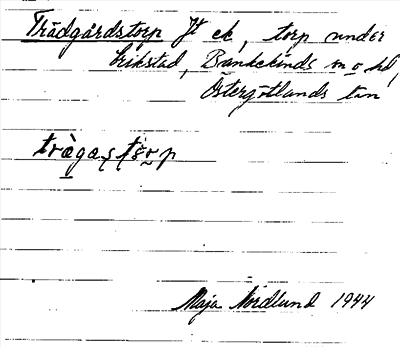 Trädgårdstorp Jt ek, torp under
Erikstad, Bankekinds sn o hd,
Östergötlands län
trägastorp
Maja Nordlund 1944